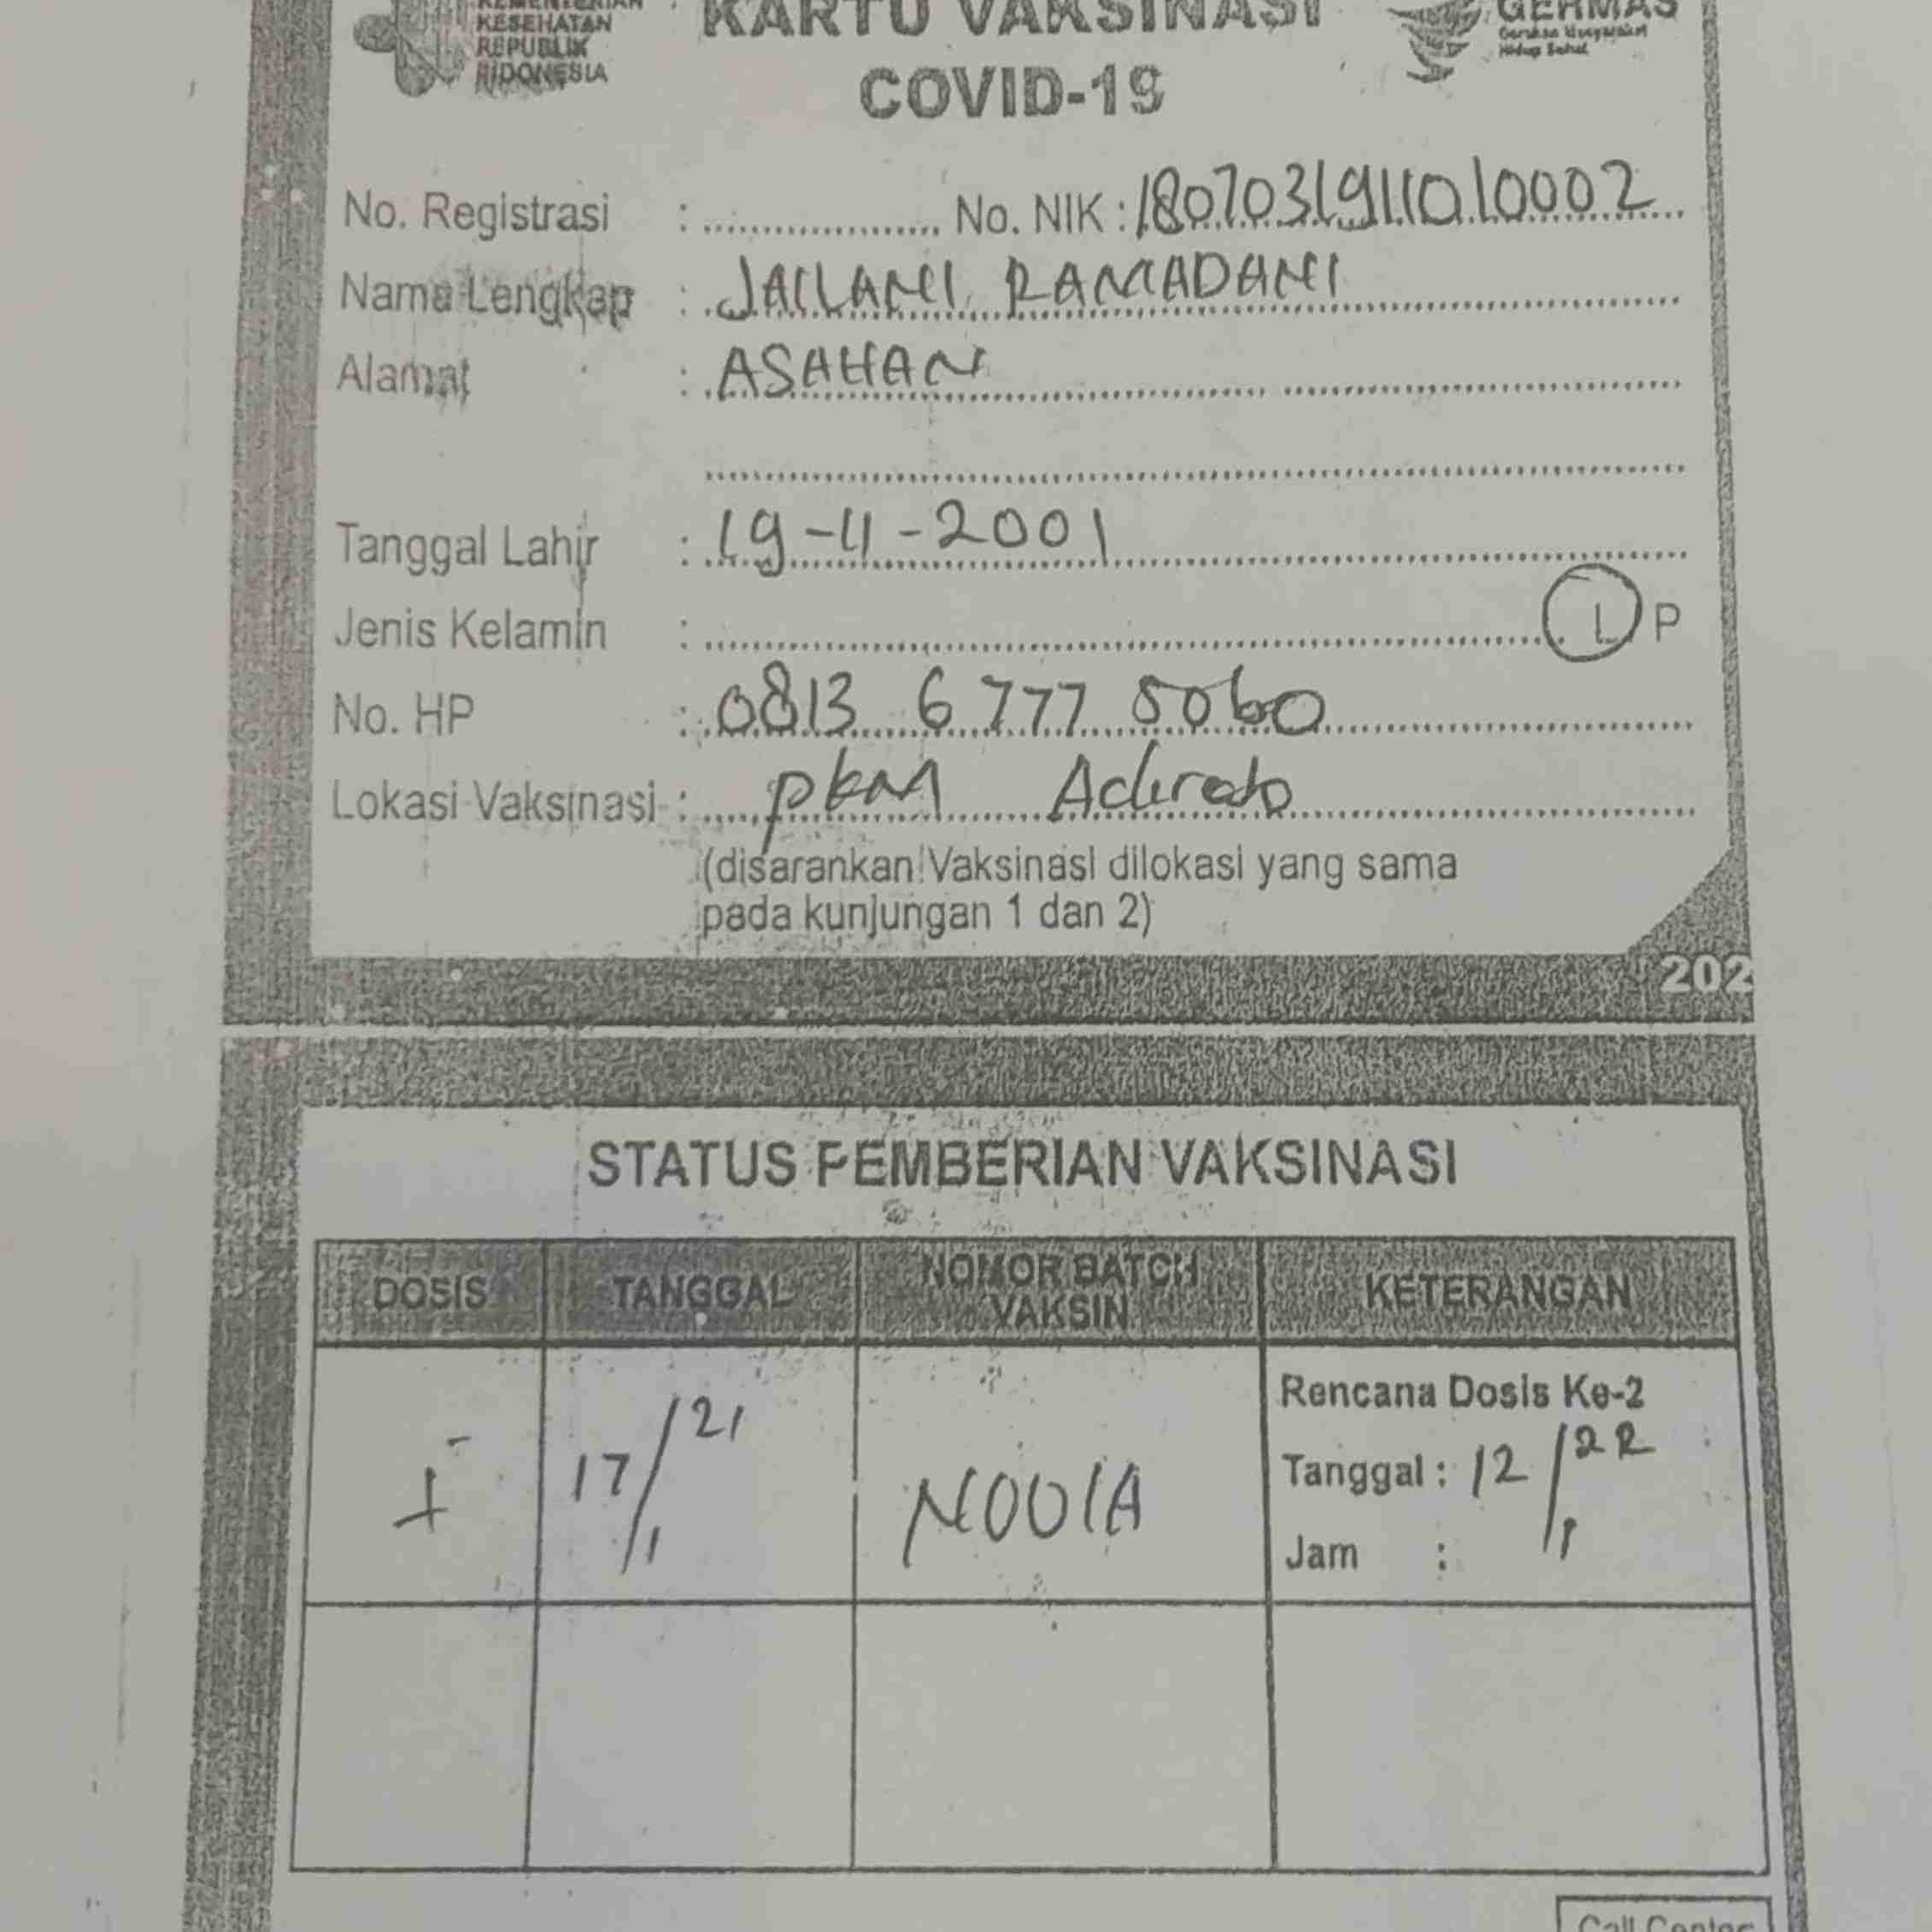 KEMENTERIAN
KESEHATAN
REPUBLIK
INDONESIA
KARTU VAKSINASI
COVID-19
GERMAS
Gerakan Masyarakat
Hidup Sehat
No. Registrasi : No. NIK : 1807031911010002
Nama Lengkap : JAILANI RAMADANI
Alamat : ASAHAN
Tanggal Lahir : 19-11-2001
Jenis Kelamin : L P
No. HP : 0813 6777 5060
Lokasi Vaksinasi : PKM
(disarankan Vaksinasi dilokasi yang sama
pada kunjungan 1 dan 2)
202
STATUS PEMBERIAN VAKSINASI
DOSIS TANGGAL NOMOR BATCH VAKSIN KETERANGAN
I 17/1 21
Rencana Dosis Ke-2
Tanggal : 12/1 22
Jam :
Call Center